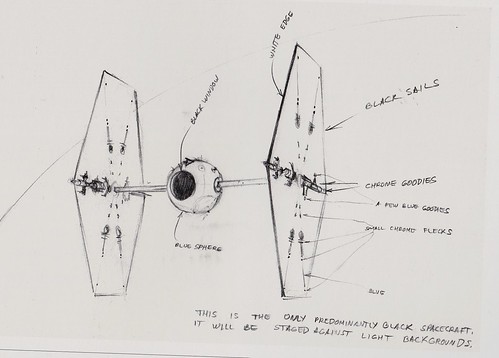 WHITE EDGE
BLACK WINDOW
BLACK SAILS
CHROME GOODIES
A FEW BLUE GOODIES
SMALL CHROME FLECKS
BLUE SPHERE
BLUE
THIS IS THE ONLY PREDOMINANTLY BLACK SPACECRAFT.
IT WILL BE STAGED AGAINST LIGHT BACKGROUNDS.